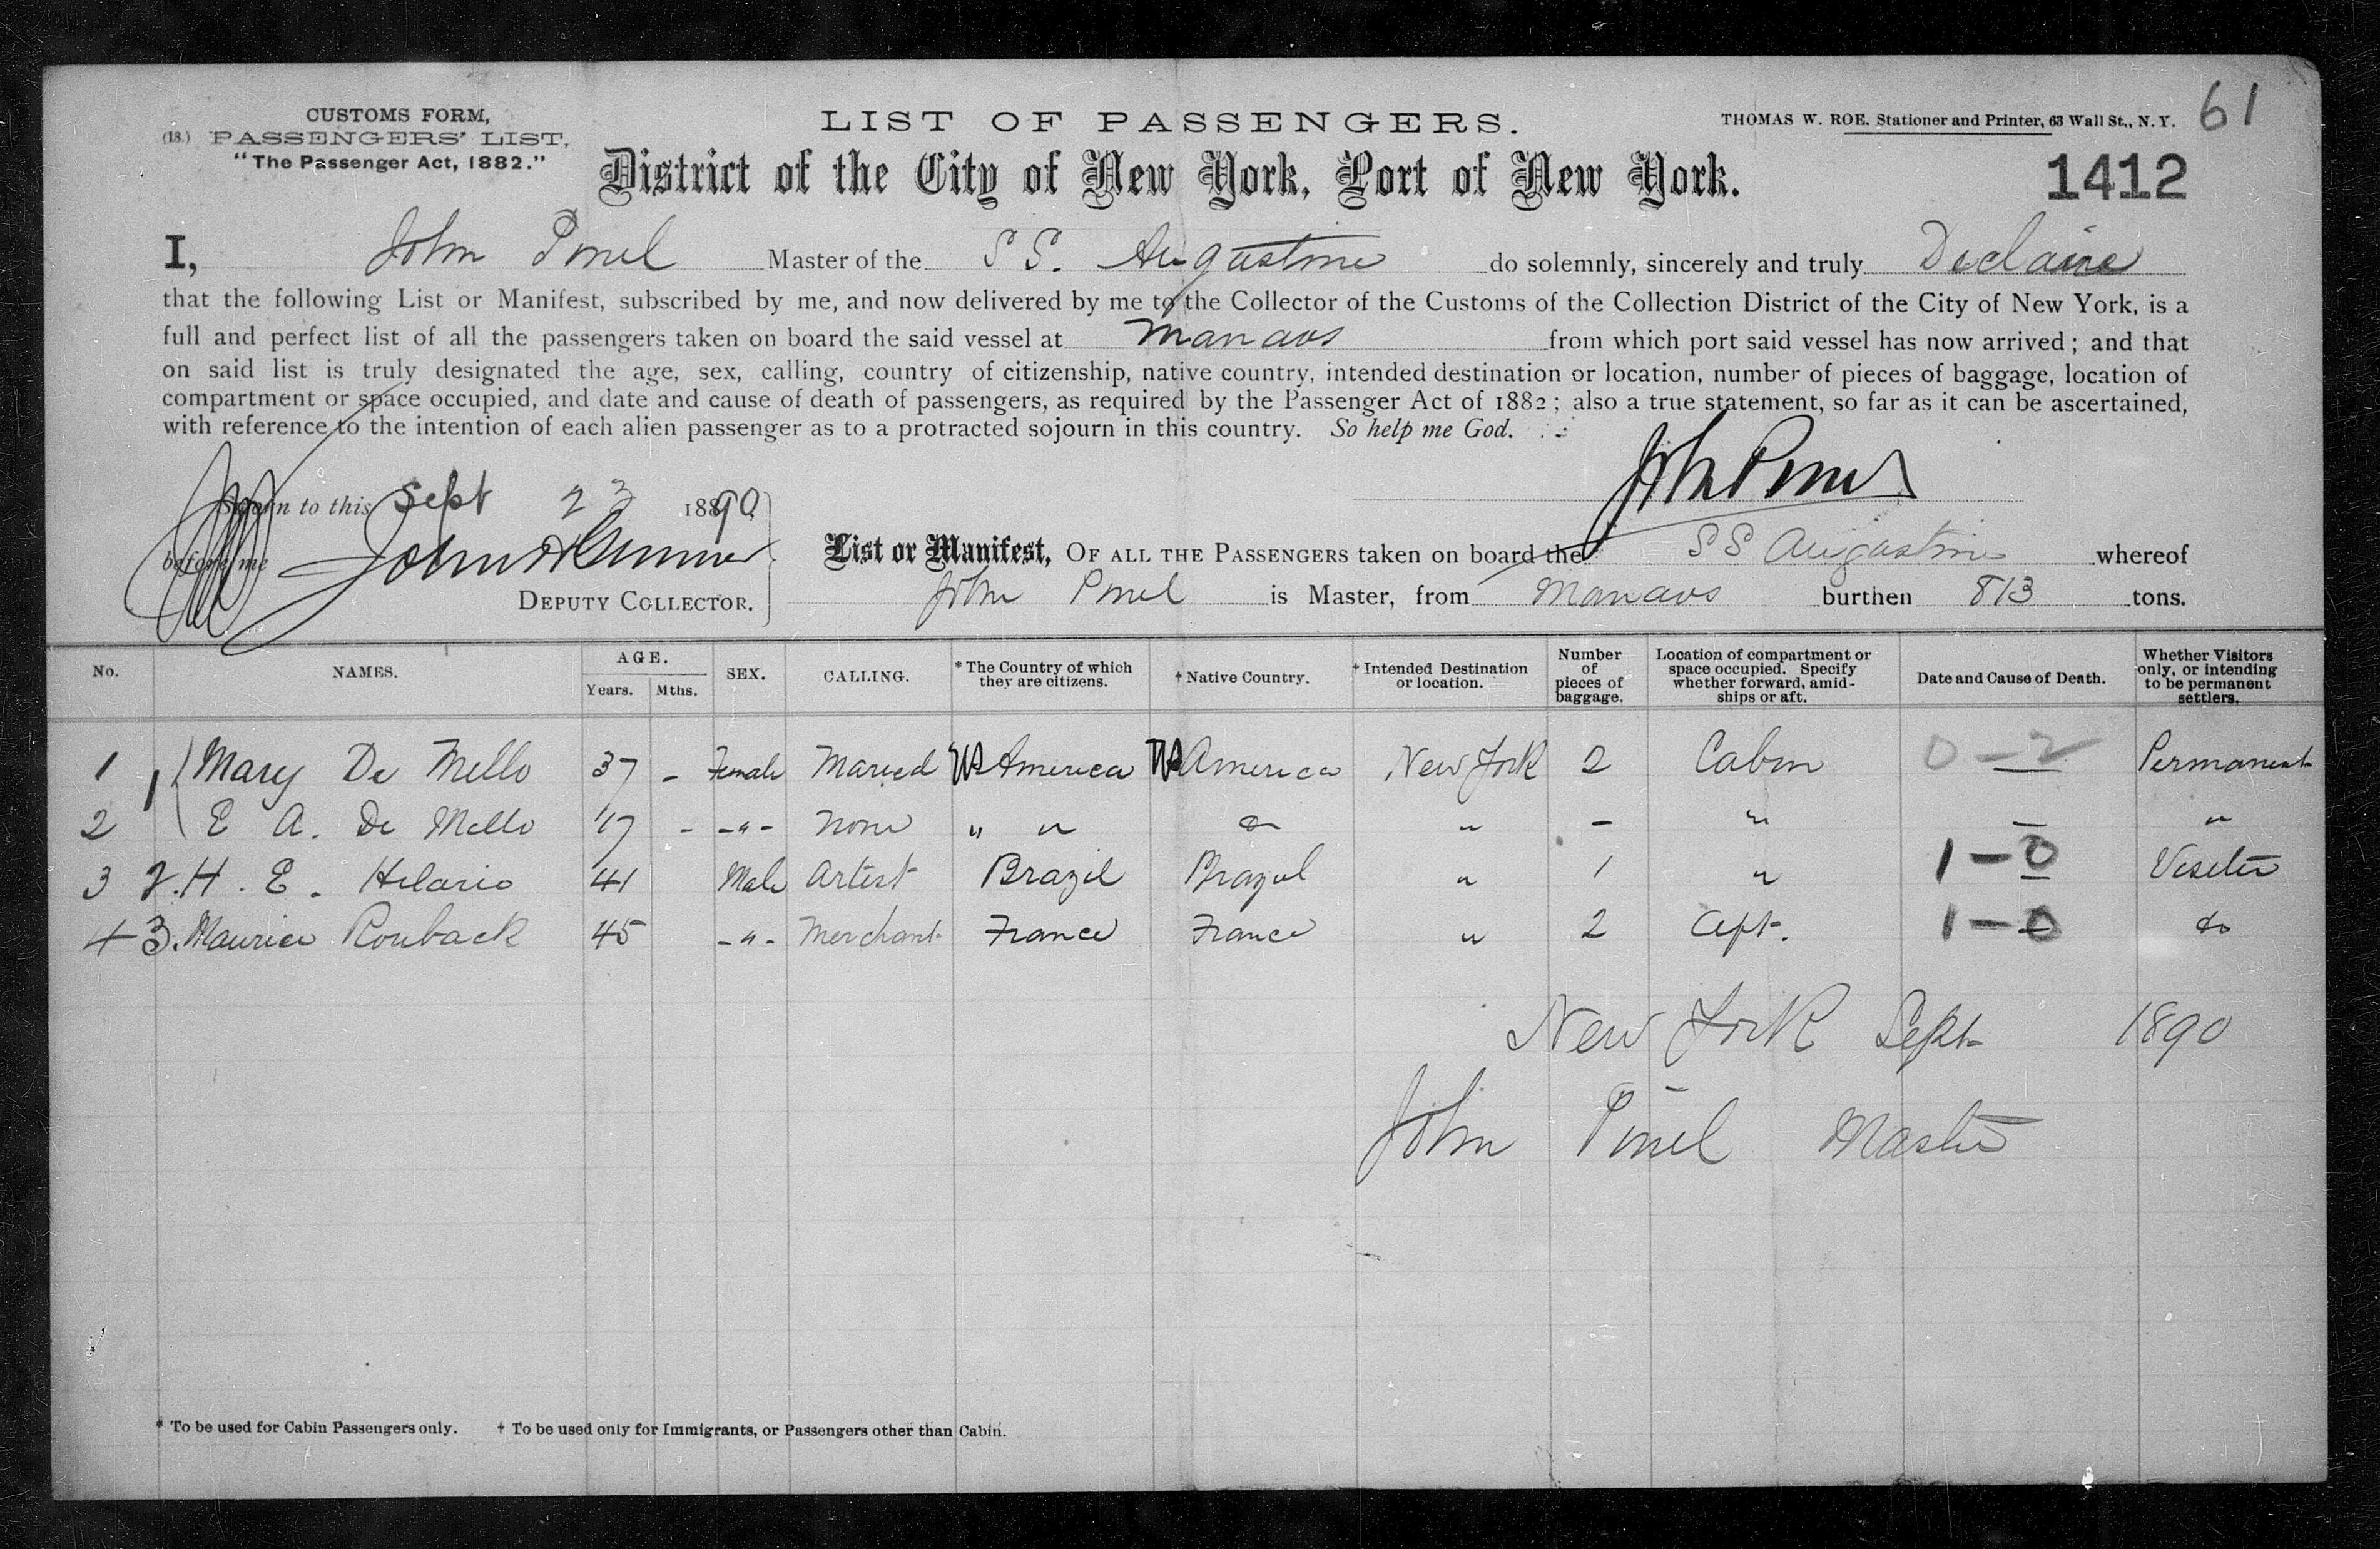 CUSTOMS FORM,
(18.) PASSENGERS' LIST,
"The Passenger Act, 1882."
LIST OF PASSENGERS.
THOMAS W. ROE. Stationer and Printer, 63 Wall St., N. Y.
61
District of the City of New York, Port of New York.
1412
I, John Pinel Master of the S S. Augustine do solemnly, sincerely and truly Declaire
that the following List or Manifest, subscribed by me, and now delivered by me to the Collector of the Customs of the Collection District of the City of New York, is a
full and perfect list of all the passengers taken on board the said vessel at Manaos from which port said vessel has now arrived; and that
on said list is truly designated the age, sex, calling, country of citizenship, native country, intended destination or location, number of pieces of baggage, location of
compartment or space occupied, and date and cause of death of passengers, as required by the Passenger Act of 1882; also a true statement, so far as it can be ascertained,
with reference to the intention of each alien passenger as to a protracted sojourn in this country. So help me God.
John Pinel
Sworn to this Sept 23 1890
before me John
DEPUTY COLLECTOR.
List or Manifest, OF ALL THE PASSENGERS taken on board the S S Augustine whereof
John Pinel is Master, from Manaos burthen 813 tons.
No. NAMES. AGE. Years. Mths. SEX. CALLING. * The Country of which they are citizens. † Native Country. † Intended Destination or location. Number of pieces of baggage. Location of compartment or space occupied. Specify whether forward, amidships or aft. Date and Cause of Death. Whether Visitors only, or intending to be permanent settlers.
1 1 Mary De Mello 37 - Female Maried US America US America New York 2 Cabin 0-2 — Permanent
2 E A. De Mello 17 - -"- None " " do " - " — "
3 2. H. E. Hilario 41 Male Artist Brazil Brazil " 1 " 1-0 Visiter
4 3. Maurice Rouback 45 -"- Merchant France France " 2 Aft. 1-0 do
New York Sept 1890
John Pinel Master
* To be used for Cabin Passengers only. † To be used only for Immigrants, or Passengers other than Cabin.